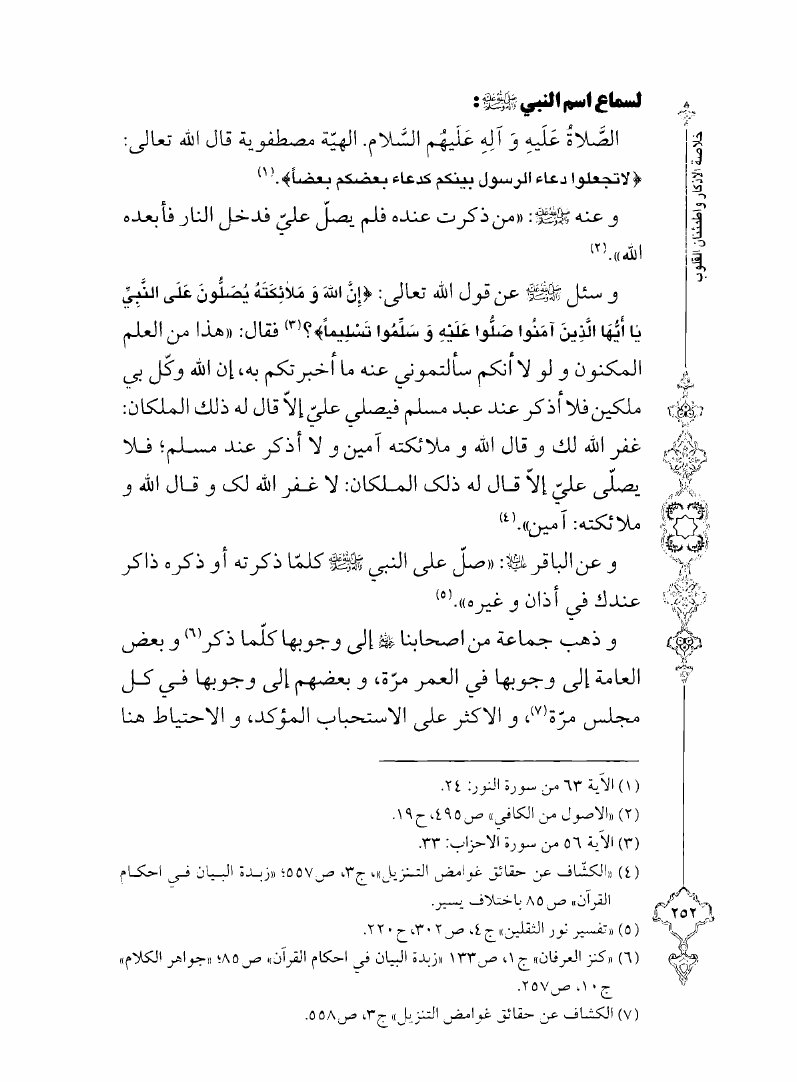 لسماع اسم النبي ﷺ :
الصَّلاةُ عَلَيهِ وَ آلِهِ عَلَيهُم السَّلام. الهيّة مصطفوية قال الله تعالى:
﴿لاتجعلوا دعاء الرسول بينكم كدعاء بعضكم بعضاً﴾.(١)
و عنه ﷺ: «من ذكرت عنده فلم يصلّ عليّ فدخل النار فأبعده
الله».(٢)
و سئل ﷺ عن قول الله تعالى: ﴿إِنَّ اللهَ وَ مَلائِكَتَهُ يُصَلُّونَ عَلَى النَّبِيِّ
يَا أَيُّهَا الَّذِينَ آمَنُوا صَلُّوا عَلَيْهِ وَ سَلِّمُوا تَسْلِيماً﴾؟(٣) فقال: «هذا من العلم
المكنون و لو لا أنكم سألتموني عنه ما أخبرتكم به، إن الله وكّل بي
ملكين فلا أذكر عند عبد مسلم فيصلي عليّ إلاّ قال له ذلك الملكان:
غفر الله لك و قال الله و ملائكته آمين و لا أذكر عند مسلم؛ فلا
يصلّى عليّ إلاّ قال له ذلک الملكان: لا غفر الله لک و قال الله و
ملائكته: آمين».(٤)
و عن الباقر ﵇: «صلّ على النبي ﷺ كلمّا ذكرته أو ذكره ذاكر
عندك في أذان و غيره».(٥)
و ذهب جماعة من اصحابنا إلى وجوبها كلّما ذكر(٦) و بعض
العامة إلى وجوبها في العمر مرّة، و بعضهم إلى وجوبها في كل
مجلس مرّة(٧)، و الاكثر على الاستحباب المؤكد، و الاحتياط هنا
(١) الآية ٦٣ من سورة النور: ٢٤.
(٢) «الاصول من الكافي» ص٤٩٥، ح١٩.
(٣) الآية ٥٦ من سورة الاحزاب: ٣٣.
(٤) «الكشّاف عن حقائق غوامض التنزيل»، ج٣، ص٥٥٧؛ «زبدة البيان في احكام
القرآن» ص٨٥ باختلاف يسير.
(٥) «تفسير نور الثقلين» ج٤، ص٣٠٢، ح٢٢٠.
(٦) «كنز العرفان» ج١، ص١٣٣ «زبدة البيان في احكام القرآن» ص٨٥؛ «جواهر الكلام»
ج١٠، ص٢٥٧.
(٧) الكشاف عن حقائق غوامض التنزيل» ج٣، ص٥٥٨.
خلاصة الاذكار و اطمئنان القلوب
٢٥٢